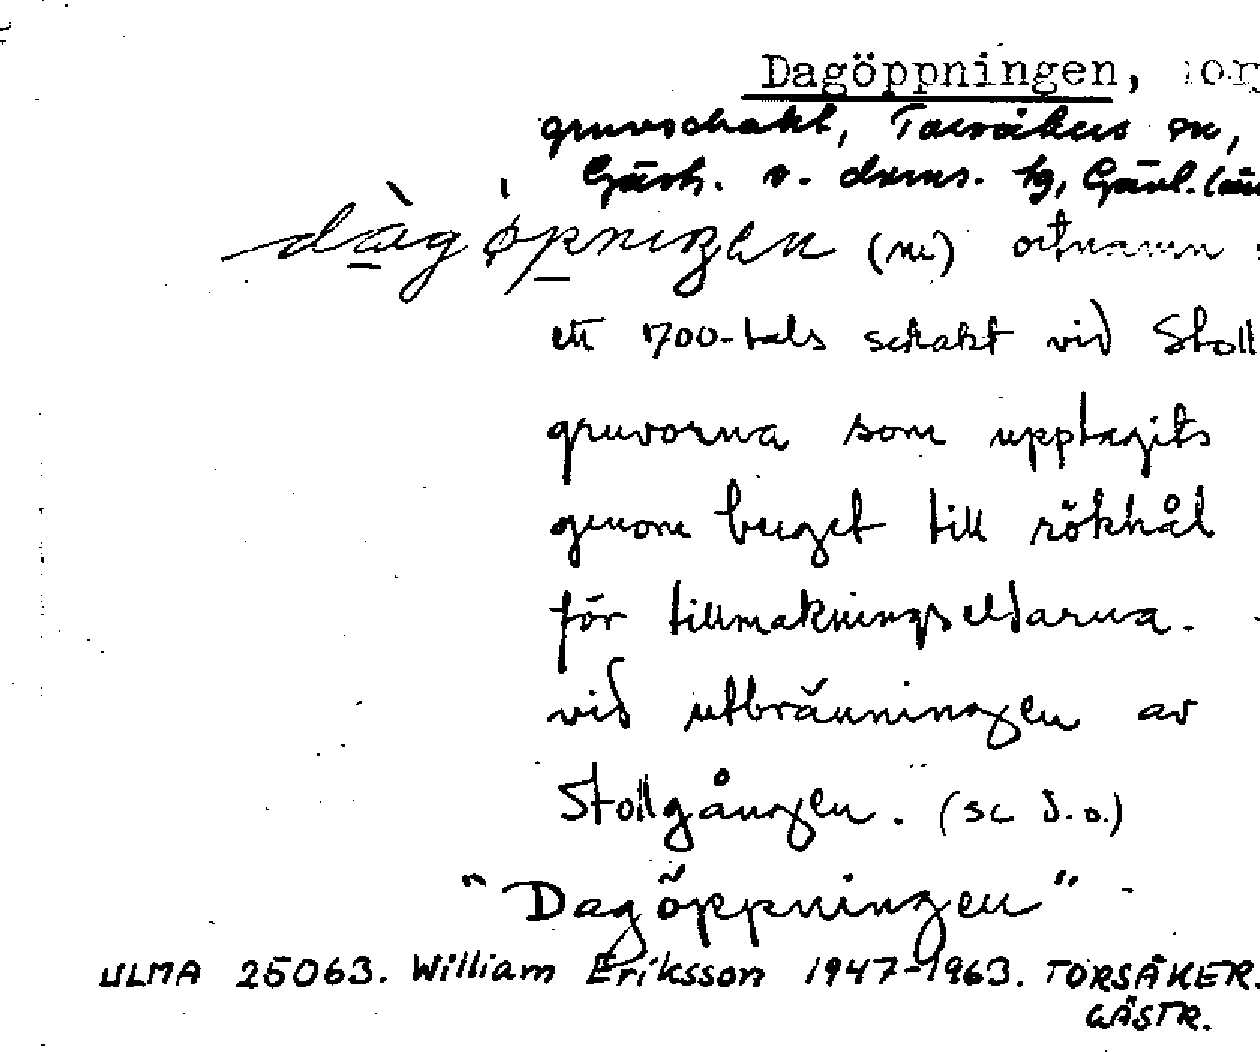 Dagöppningen,
gruvschakt, Torsåkers sn,
Gästr. v. doms. tg, Gävl. län
dàgöpningen (ni) ortnamn
ett 1700-tals schakt vid Stoll
gruvorna som upptagits
genom berget till rökhål
för tillmakningseldarna.
vid utbränningen av
Stollgången. (se d.o.)
"Dagöppningen"
ULMA 25063. William Eriksson 1947-1963. TORSÅKER.
GÄSTR.